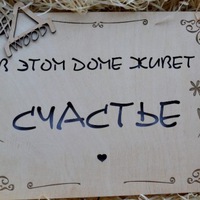 WOOD
В ЭТОМ ДОМЕ ЖИВЕТ
СЧАСТЬЕ